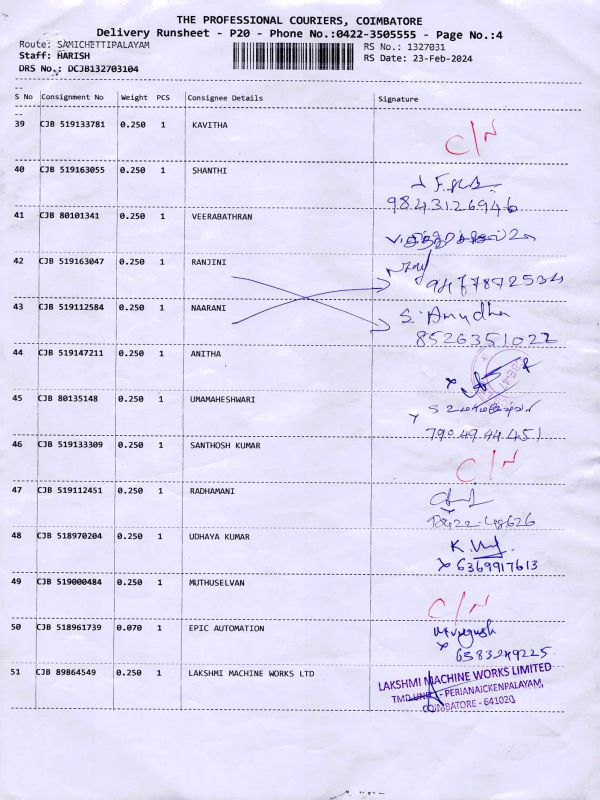 THE PROFESSIONAL COURIERS, COIMBATORE
Delivery Runsheet - P20 - Phone No.:0422-3505555 - Page No.:4
Route: SAMICHETTIPALAYAM RS No.: 1327031
Staff: HARISH RS Date: 23-Feb-2024
DRS No.: DCJB132703104
S No Consignment No Weight PCS Consignee Details Signature
39 CJB 519133781 0.250 1 KAVITHA C/N
40 CJB 519163055 0.250 1 SHANTHI
9843126946
41 CJB 80101341 0.250 1 VEERABATHRAN
42 CJB 519163047 0.250 1 RANJINI
9477872534
43 CJB 519112584 0.250 1 NAARANI S. Anudha
8526351022
44 CJB 519147211 0.250 1 ANITHA
45 CJB 80135148 0.250 1 UMAMAHESHWARI
7904944451
46 CJB 519133309 0.250 1 SANTHOSH KUMAR C/N
47 CJB 519112451 0.250 1 RADHAMANI
48 CJB 518970204 0.250 1 UDHAYA KUMAR
6369917613
49 CJB 519000484 0.250 1 MUTHUSELVAN C/N
50 CJB 518961739 0.070 1 EPIC AUTOMATION
6383249225
51 CJB 89864549 0.250 1 LAKSHMI MACHINE WORKS LTD LAKSHMI MACHINE WORKS LIMITED
TMD UNIT - PERIANAICKENPALAYAM,
COIMBATORE - 641020